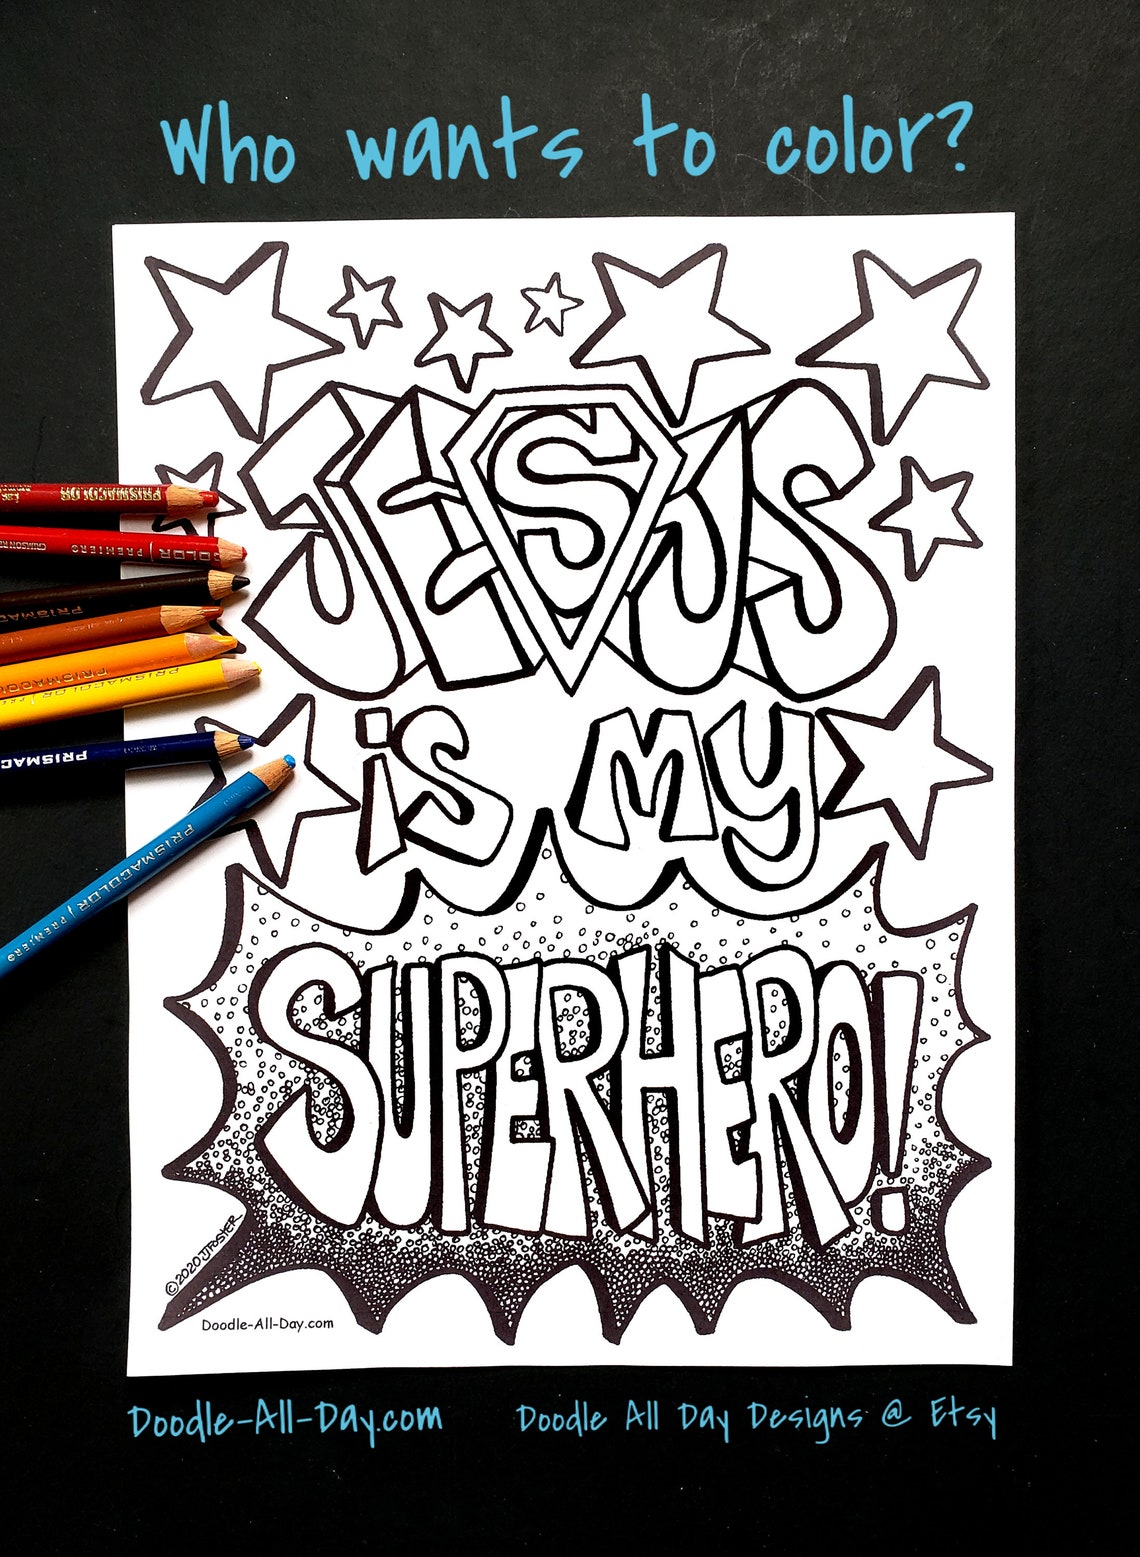 Who wants to color?
JESUS
is MY
SUPERHERO!
PRISMACOLOR
PREMIER COLOR
PRISMAC
PRISMACOLOR
PRISMACO
PRISMACOLOR PREMIER
©2020 JFOSTER
Doodle-All-Day.com
Doodle-All-Day.com Doodle All Day Designs @ Etsy